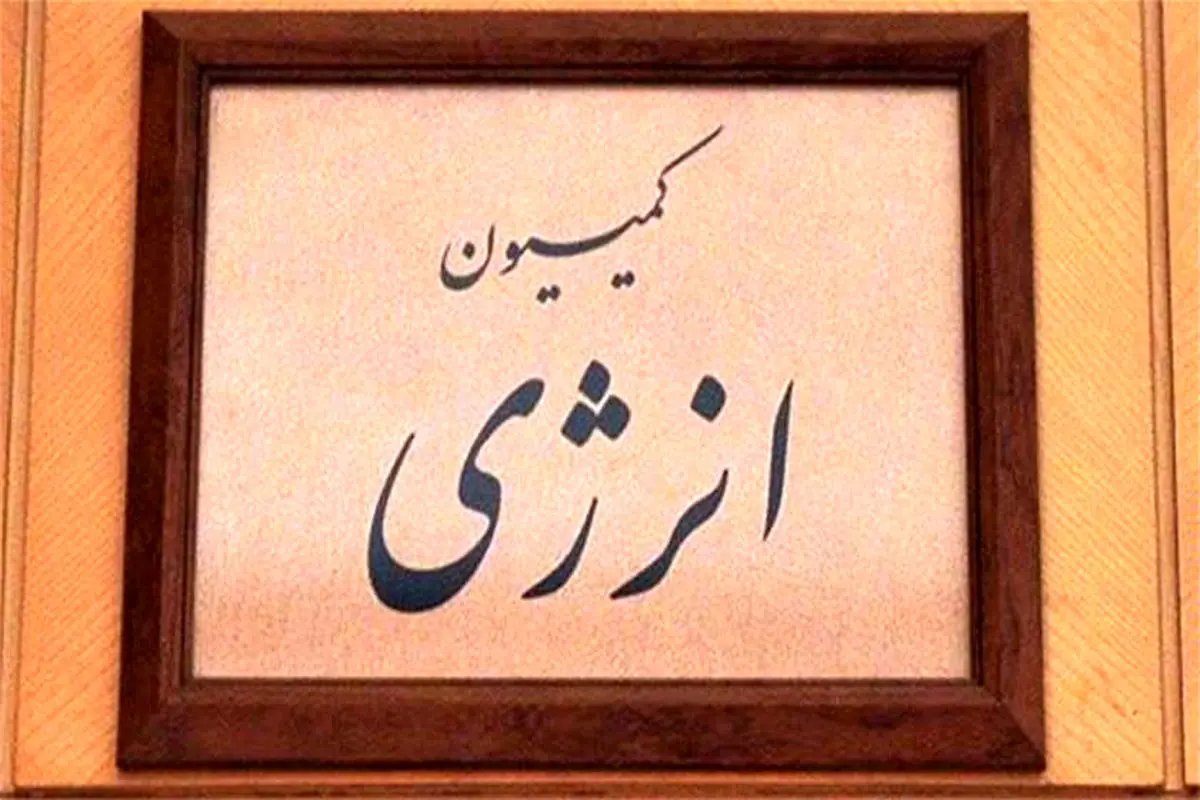 کمیسیون
انرژی